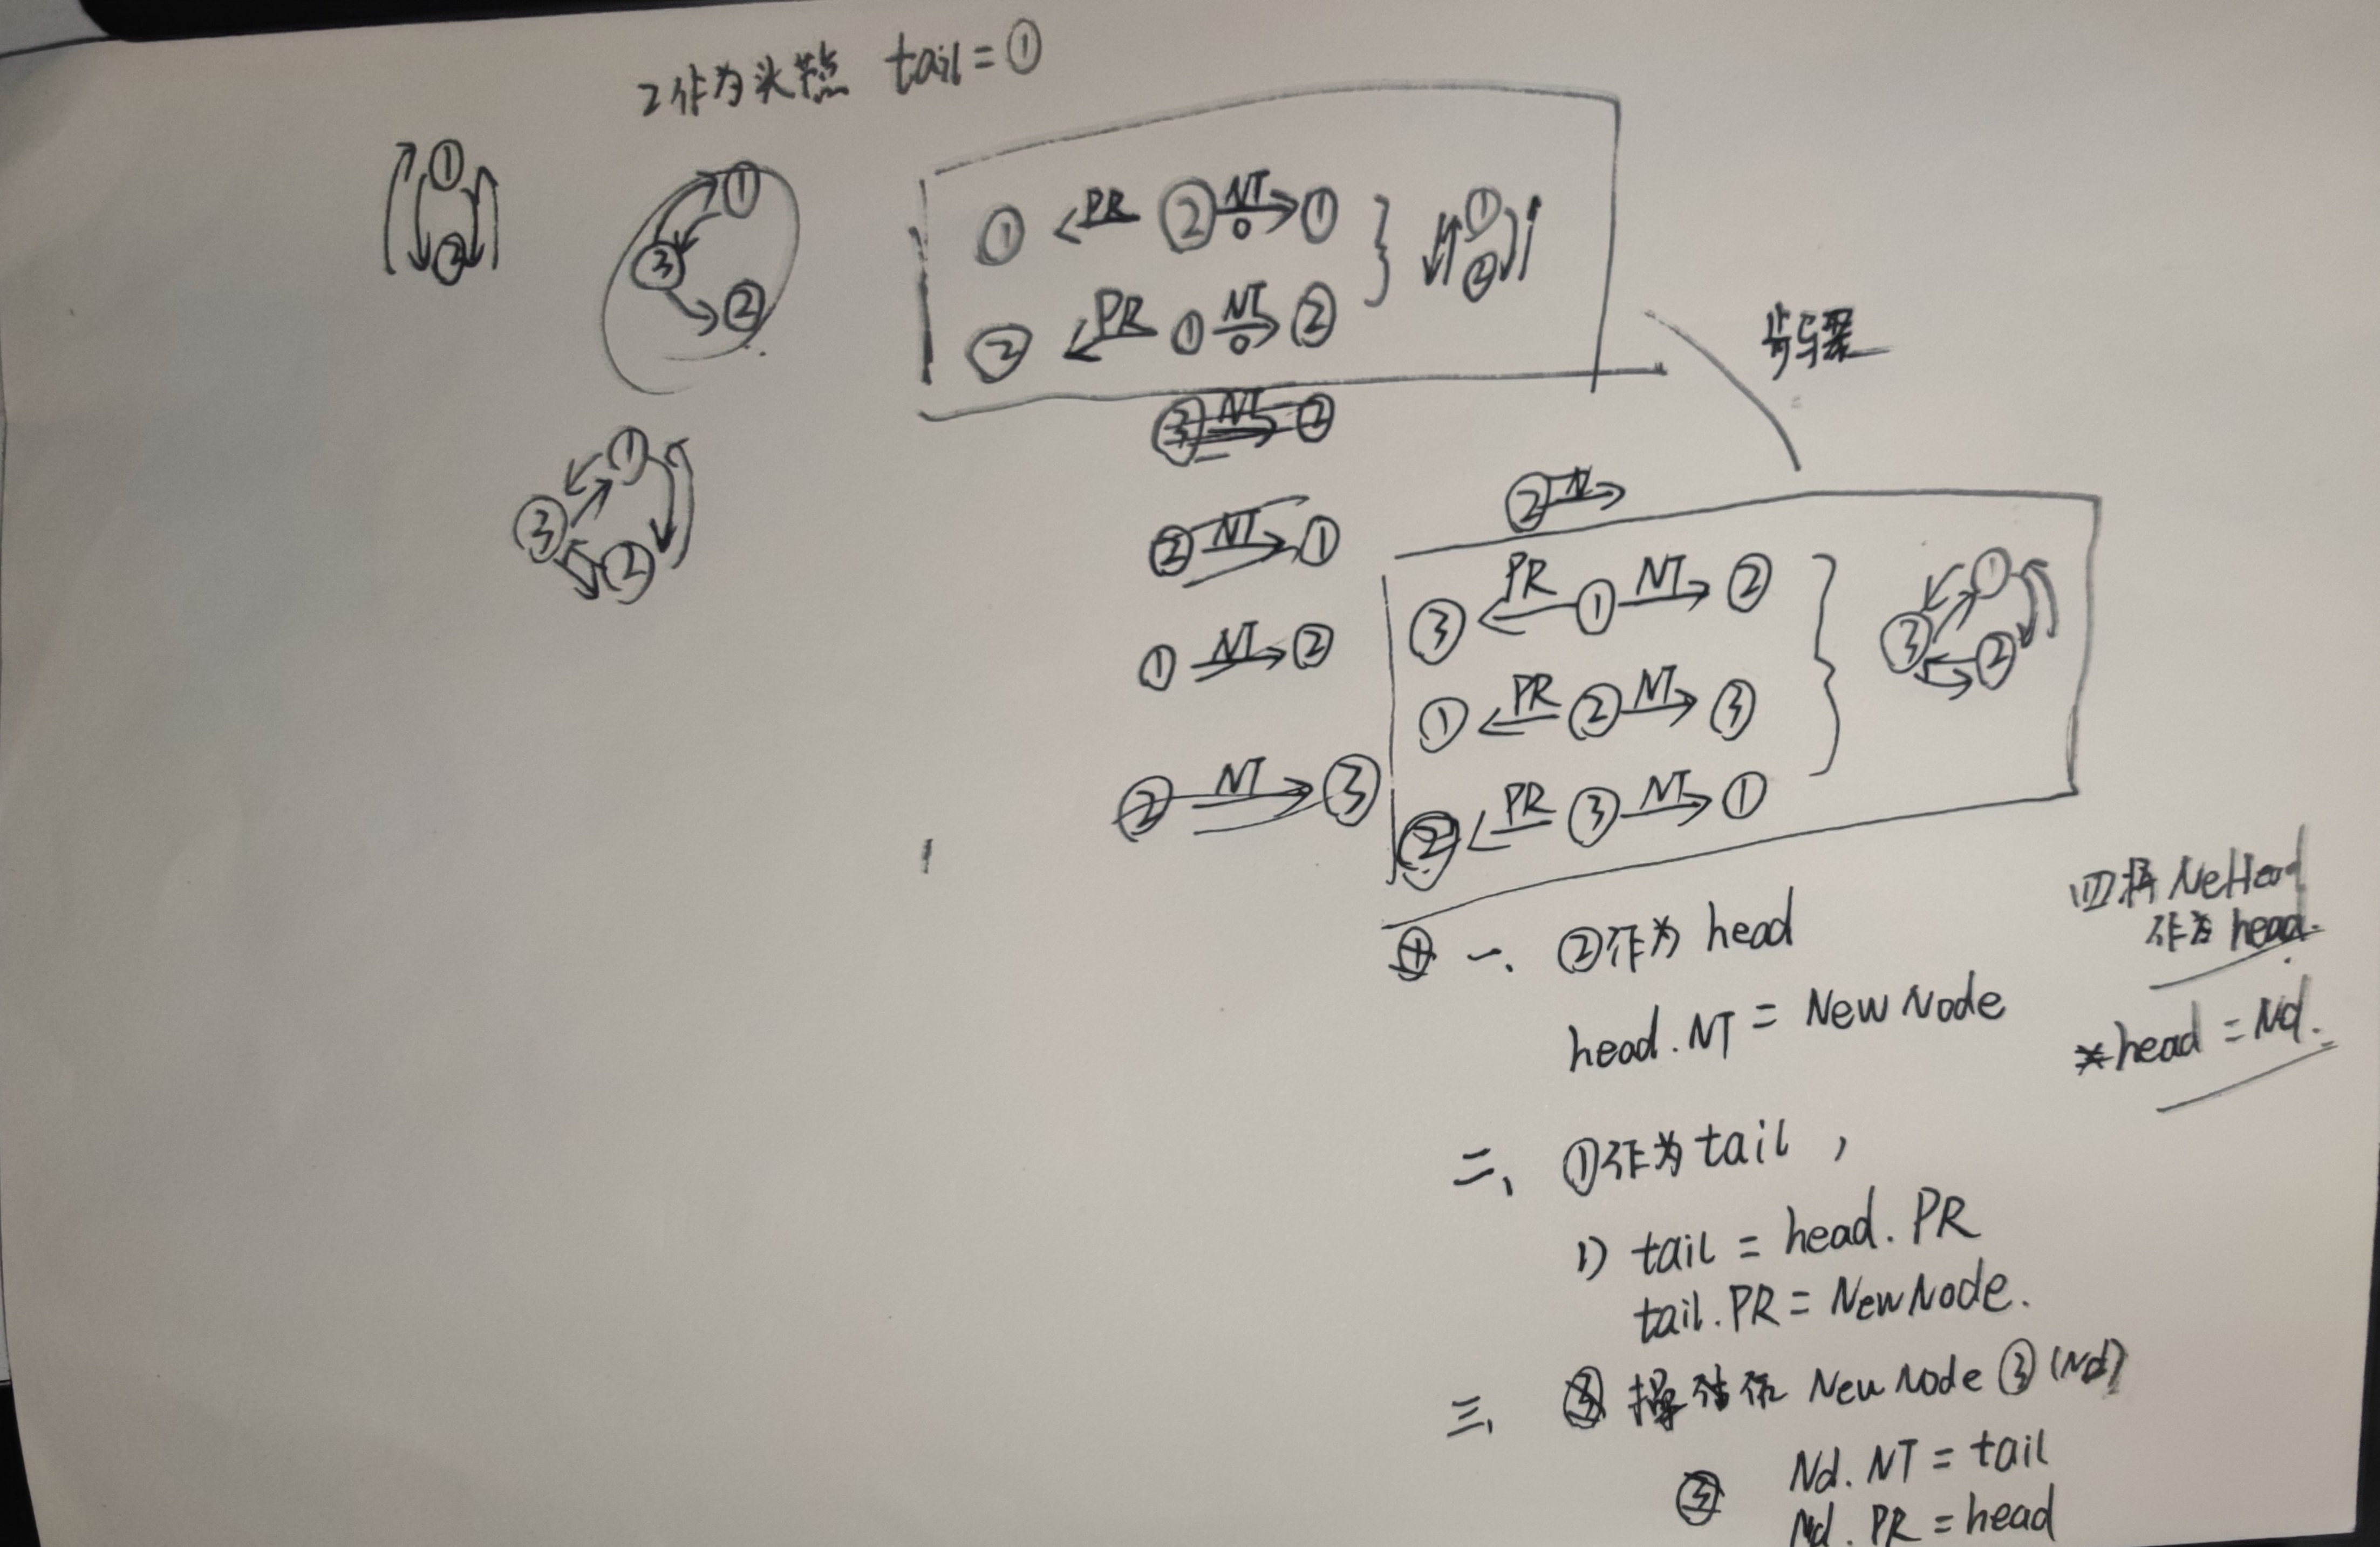 2作为头节点 tail = ①
①
②
①
③
②
① PR ② NT ①
② PR ① NT ②
①
②
步骤
③ NT ②
①
③
②
② N
② NT ①
① NT ②
② NT ③
③ PR ① NT ②
① PR ② NT ③
② PR ③ NT ①
①
③
②
一、 ②作为 head
head.NT = New Node
二、 ①作为 tail ,
1) tail = head.PR
tail.PR = NewNode.
三、 New Node ③ (Nd)
Nd.NT = tail
Nd.PR = head
四将 NeHead
作为 head.
*head = Nd.